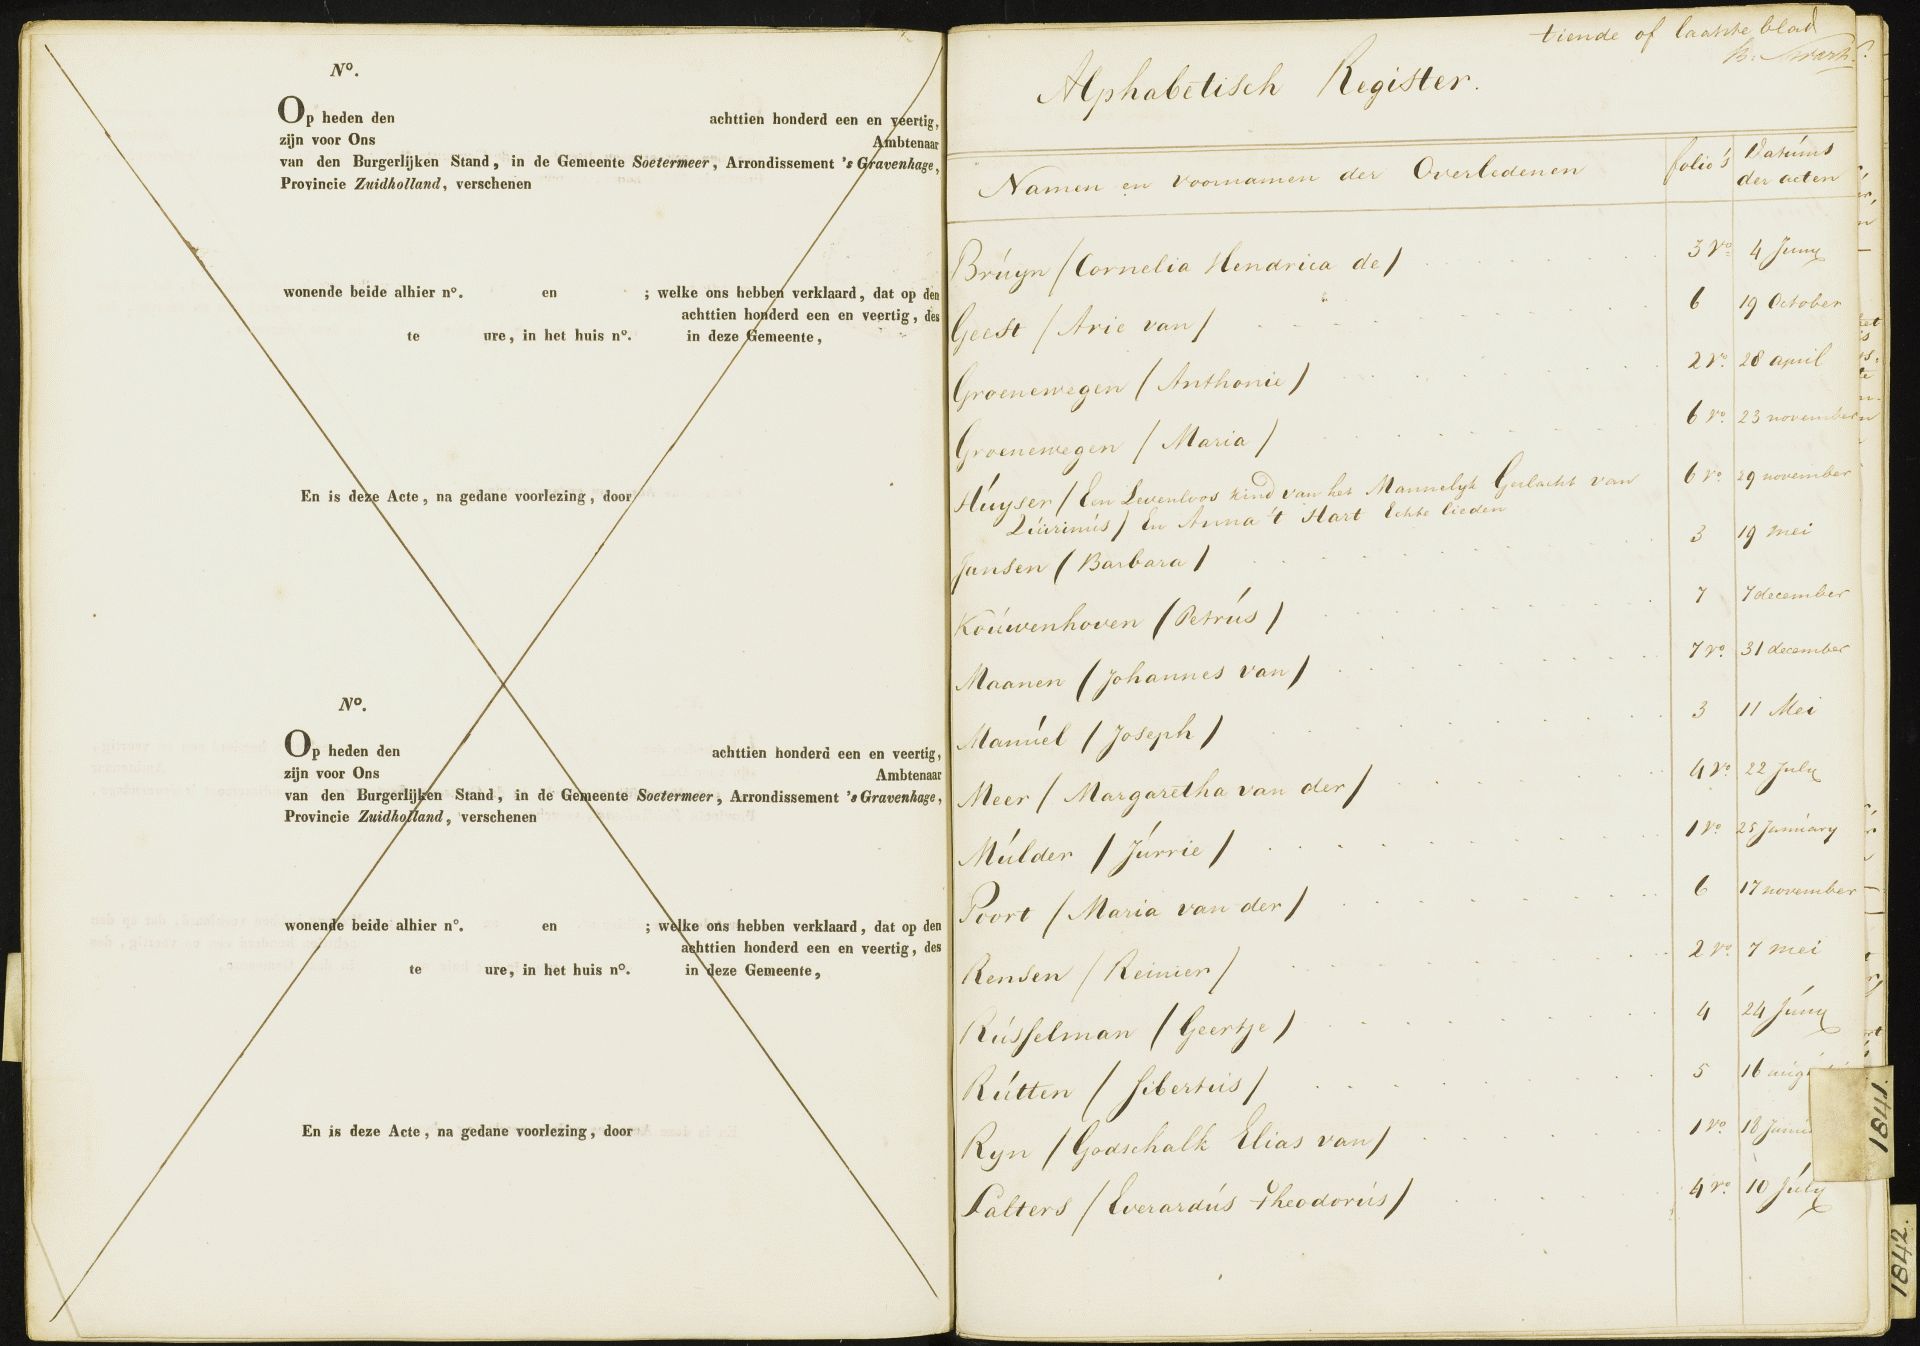 Nº.
Op heden den achttien honderd een en veertig,
zijn voor Ons Ambtenaar
van den Burgerlijken Stand, in de Gemeente Soetermeer, Arrondissement 's Gravenhage,
Provincie Zuidholland, verschenen
wonende beide alhier nº. en ; welke ons hebben verklaard, dat op den
achttien honderd een en veertig, des
te ure, in het huis nº. in deze Gemeente,
En is deze Acte, na gedane voorlezing, door
Nº.
Op heden den achttien honderd een en veertig,
zijn voor Ons Ambtenaar
van den Burgerlijken Stand, in de Gemeente Soetermeer, Arrondissement 's Gravenhage,
Provincie Zuidholland, verschenen
wonende beide alhier nº. en ; welke ons hebben verklaard, dat op den
achttien honderd een en veertig, des
te ure, in het huis nº. in deze Gemeente,
En is deze Acte, na gedane voorlezing, door
tiende of laatste blad
Alphabetisch Register.
Namen en voornamen der Overledenen folio's Datums der acten
Bruyn / Cornelia Hendrica de / 3 vº. 4 Juny
Geest / Arie van / 6 19 October
Groenewegen / Anthonie / 2 vº. 28 april
Groenewegen / Maria / 6 vº. 23 november
Huyser / Een Levenloos kind van het Mannelyk Geslacht van 6 vº. 29 november
Quirinus / En Anna 't Hart Echte lieden
Jansen / Barbara / 3 19 mei
Kouwenhoven / Petrus / 7 7 december
Maanen / Johannes van / 7 vº. 31 december
Manuel / Joseph / 3 11 Mei
Meer / Margaretha van der / 4 vº. 22 July
Mulder / Jurrie / 1 vº. 25 January
Poort / Maria van der / 6 17 november
Rensen / Reinier / 2 vº. 7 mei
Russelman / Geertje / 4 24 Juny
Rutten / Sibertus / 5 16
Ryn / Godschalk Elias van / 1 vº. 18
Salters / Everardus Theodorus / 4 vº. 10 July
1841.
1842.